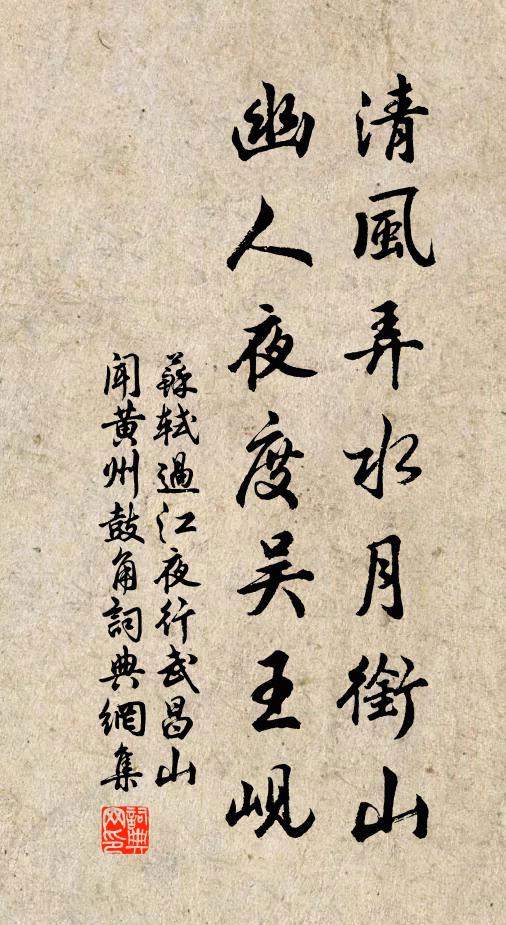 清風弄水月銜山
幽人夜度吳王峴
蘇軾過江夜行武昌山
聞黃州鼓角詞典網集
詞典
网印